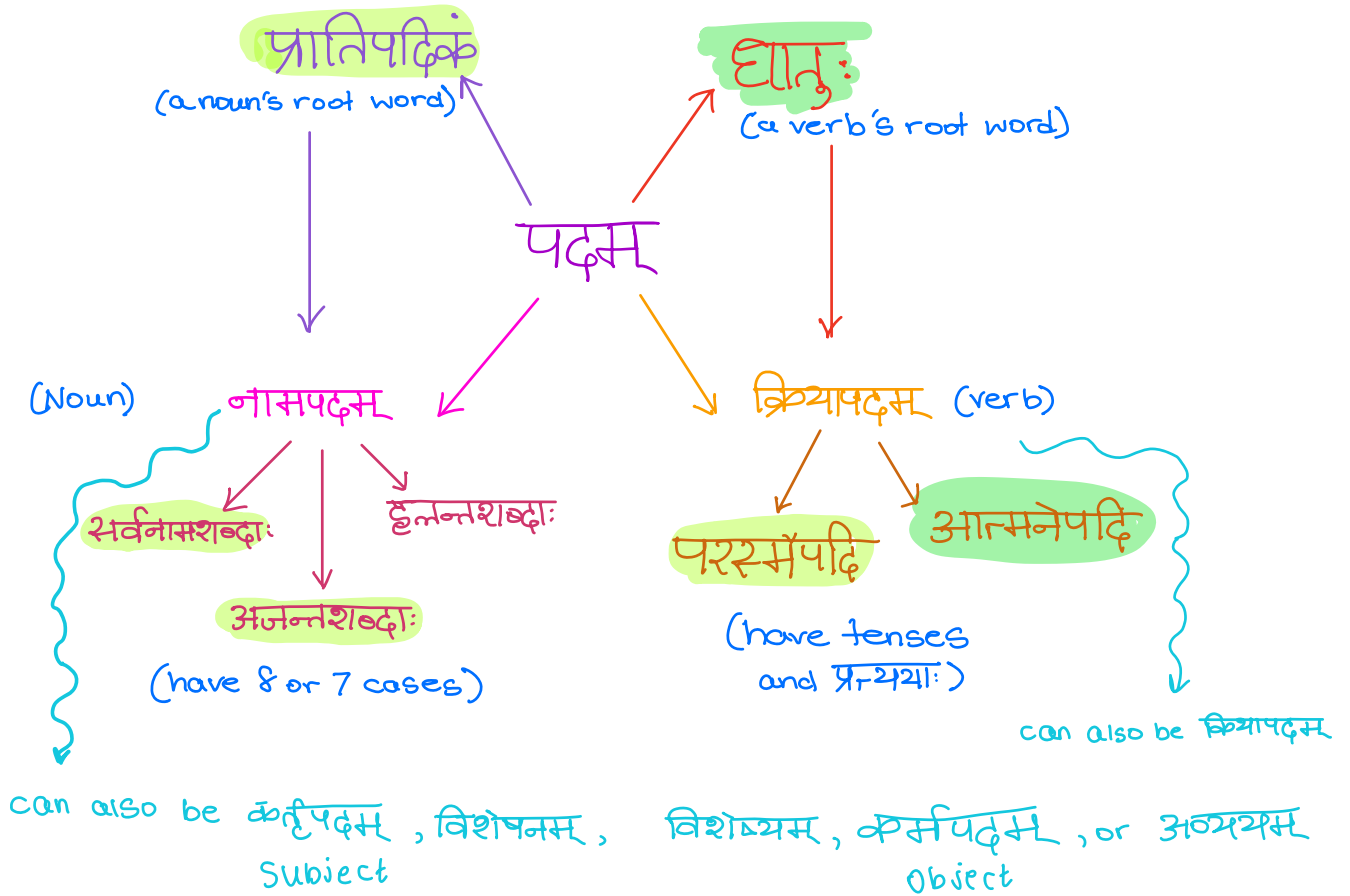 प्रातिपदिकं
धातुः
(a noun's root word)
(a verb's root word)
पदम्
(Noun) नामपदम्
क्रियापदम् (verb)
सर्वनामशब्दाः
हलन्तशब्दाः
अजन्तशब्दाः
परस्मैपदि
आत्मनेपदि
(have 8 or 7 cases)
(have tenses
and प्रत्ययाः)
can also be क्रियापदम्
can also be कर्तृपदम्, विशेषनम्, विशेष्यम्, कर्मपदम्, or अव्ययम्
Subject
Object